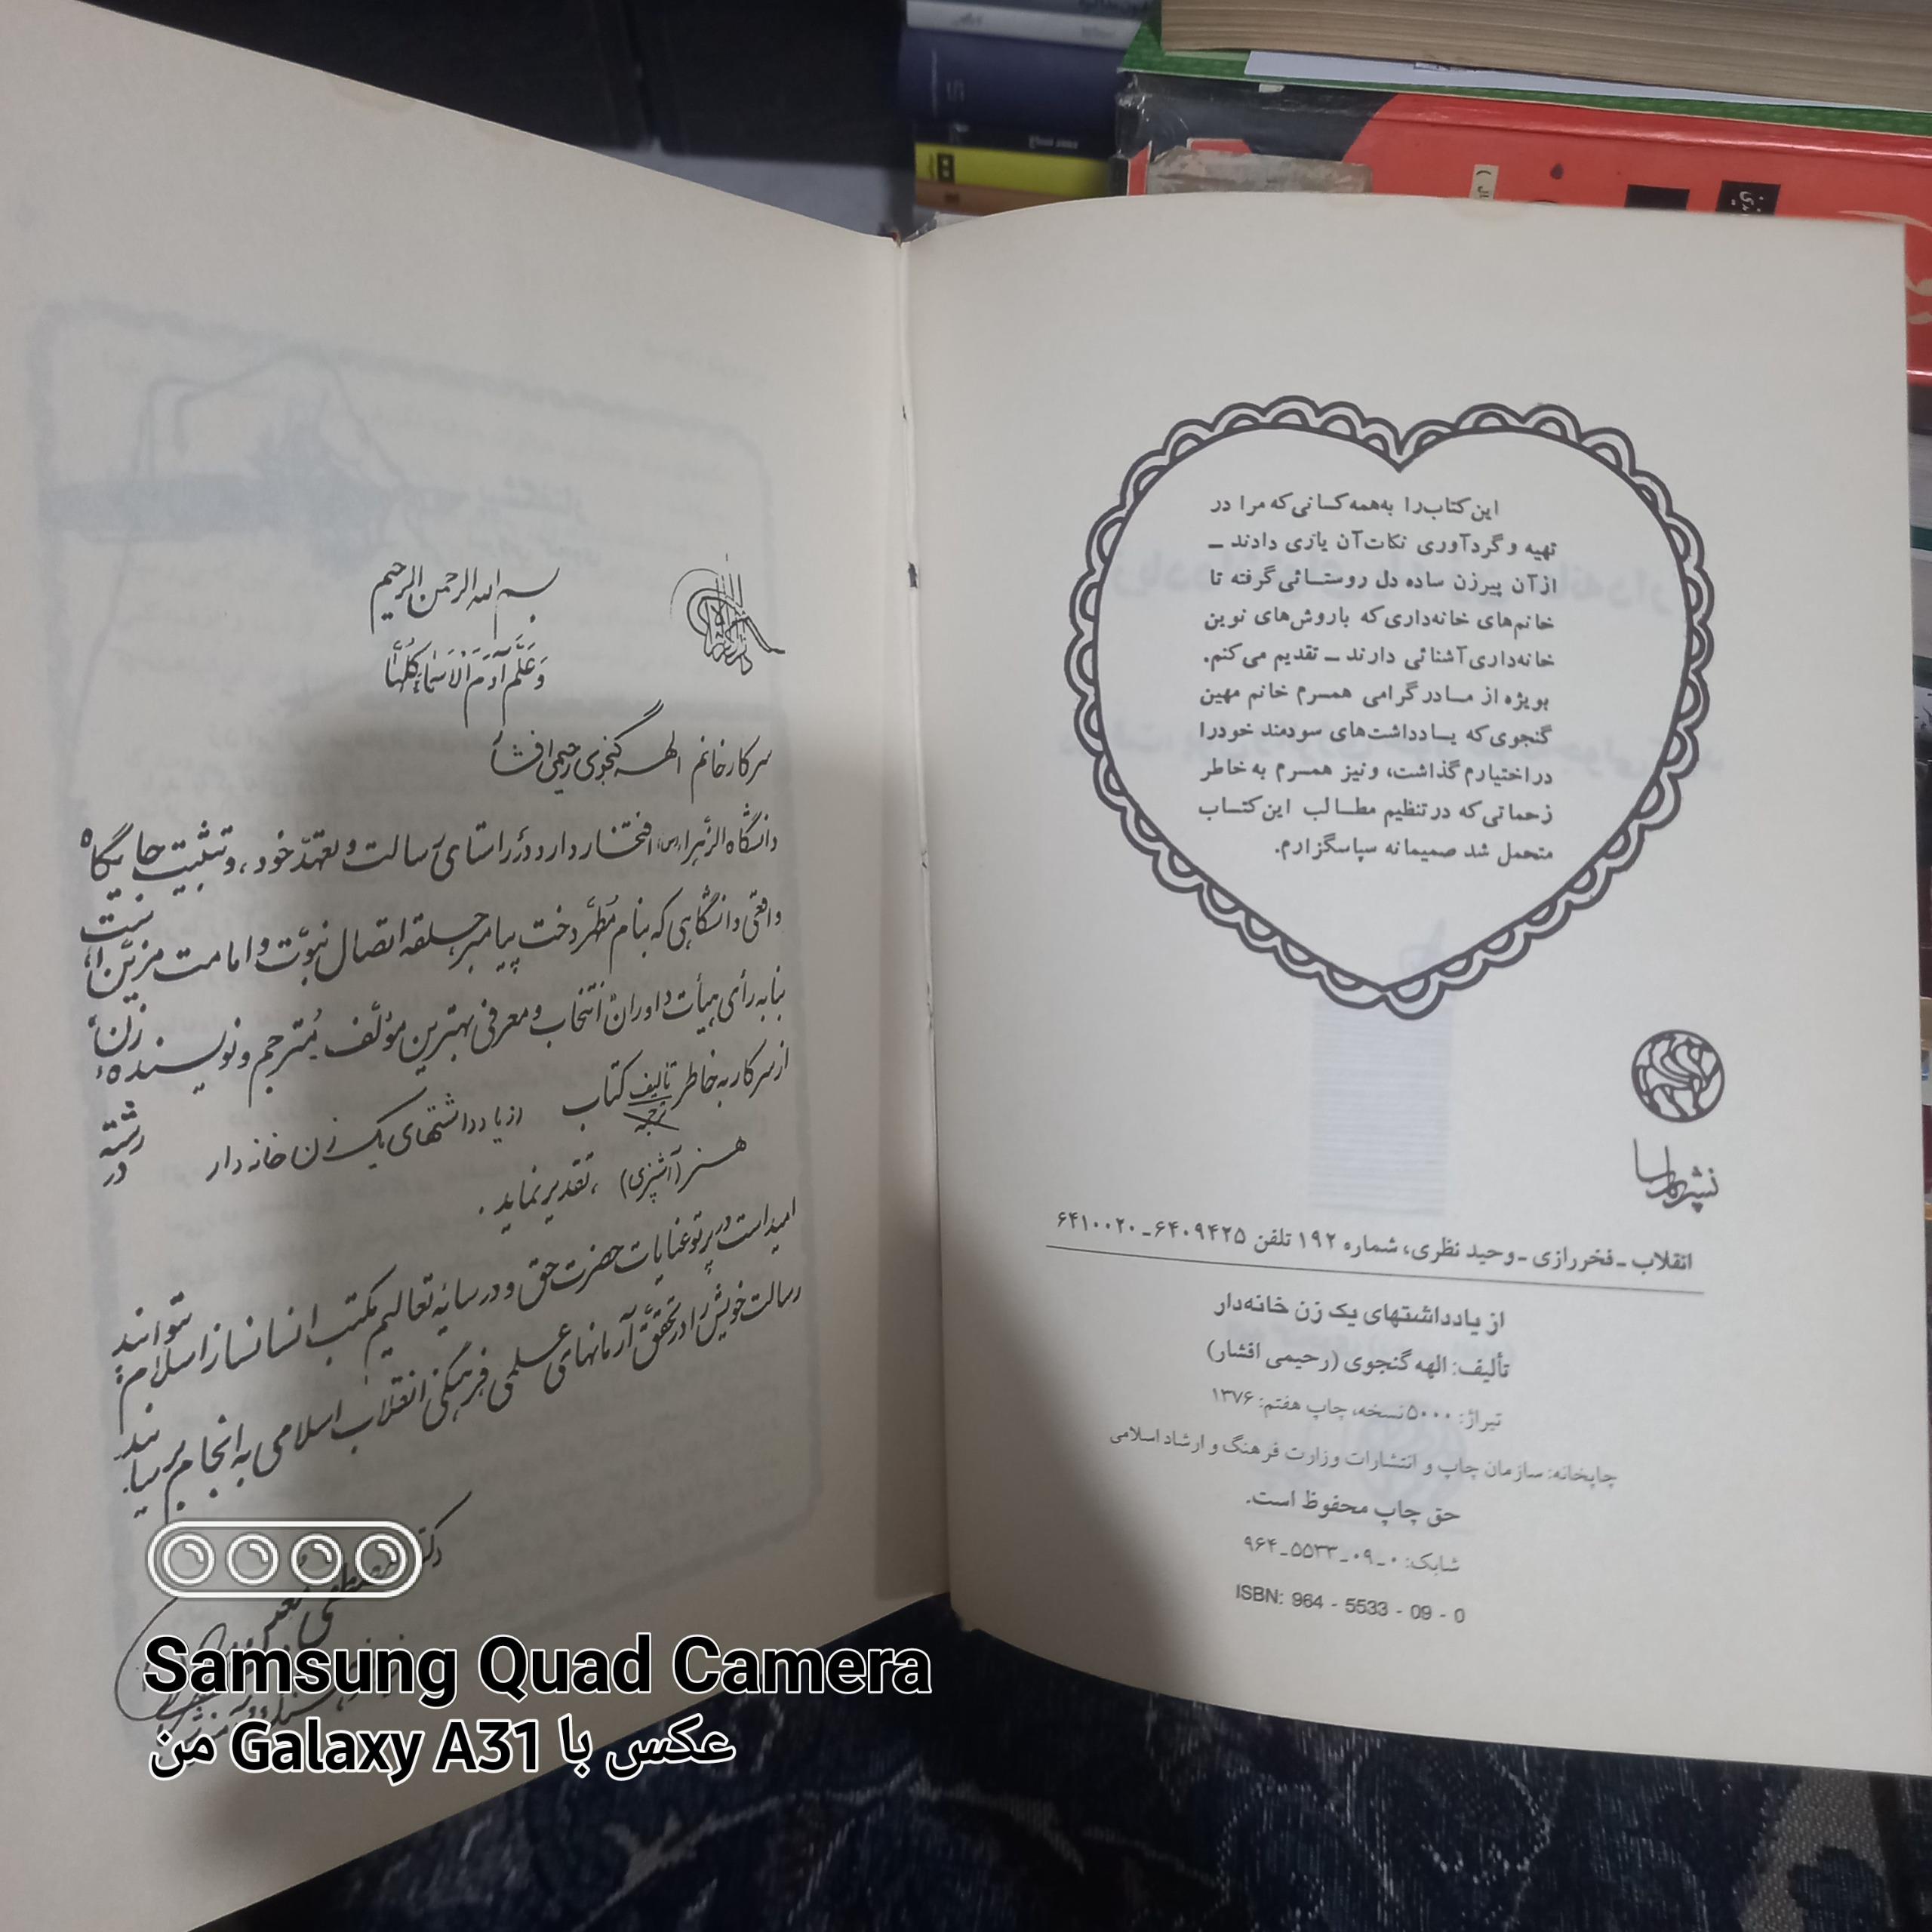 این کتاب را به همه کسانی که مرا در
تهیه و گردآوری نکات آن یاری دادند ـ
از آن پیرزن ساده دل روستائی گرفته تا
خانم‌های خانه‌داری که با روش‌های نوین
خانه‌داری آشنائی دارند ـ تقدیم می‌کنم.
بویژه از مادر گرامی همسرم خانم مهین
گنجوی که یادداشت‌های سودمند خود را
در اختیارم گذاشت، و نیز همسرم به خاطر
زحماتی که در تنظیم مطالب این کتاب
متحمل شد صمیمانه سپاسگزارم.
نشر پارسا
انقلاب ـ فخررازی ـ وحید نظری، شماره ۱۹۲ تلفن ۶۴۰۹۴۲۵ ـ ۶۴۱۰۰۲۰
از یادداشتهای یک زن خانه‌دار
تألیف: الهه گنجوی (رحیمی افشار)
تیراژ: ۵۰۰۰ نسخه، چاپ هفتم: ۱۳۷۶
چاپخانه: سازمان چاپ و انتشارات وزارت فرهنگ و ارشاد اسلامی
حق چاپ محفوظ است.
شابک: ۰ ـ ۰۹ ـ ۵۵۳۳ ـ ۹۶۴
ISBN: 964 - 5533 - 09 - 0
بسم الله الرحمن الرحیم
وَعَلَّمَ آدَمَ الْاَسْماءَ کُلَّها
سرکار خانم الهه گنجوی رحیمی افشار
دانشگاه الزهرا (س) افتخار دارد در راستای رسالت و تعهّد خود، و تثبیت جایگاه
واقعی دانشگاهی که بنام مُطهّر دخت پیامبر حلقه اتصال نبوّت و امامت مزیّن است
بنا به رأی هیأت داوران انتخاب و معرفی بهترین مؤلّف مُترجم و نویسندهٔ زن،
از سرکار به خاطر تالیف ترجمه کتاب از یادداشتهای یک زن خانه دار در رشته
هنر (آشپزی)، تقدیر نماید.
امید است در پرتو عنایات حضرت حق و در سایهٔ تعالیم مکتب انسانساز اسلام بتوانند
رسالت خویش را در تحقّق آرمانهای علمی فرهنگی انقلاب اسلامی به انجام برسانند
دکتر
Samsung Quad Camera
عکس با Galaxy A31 من